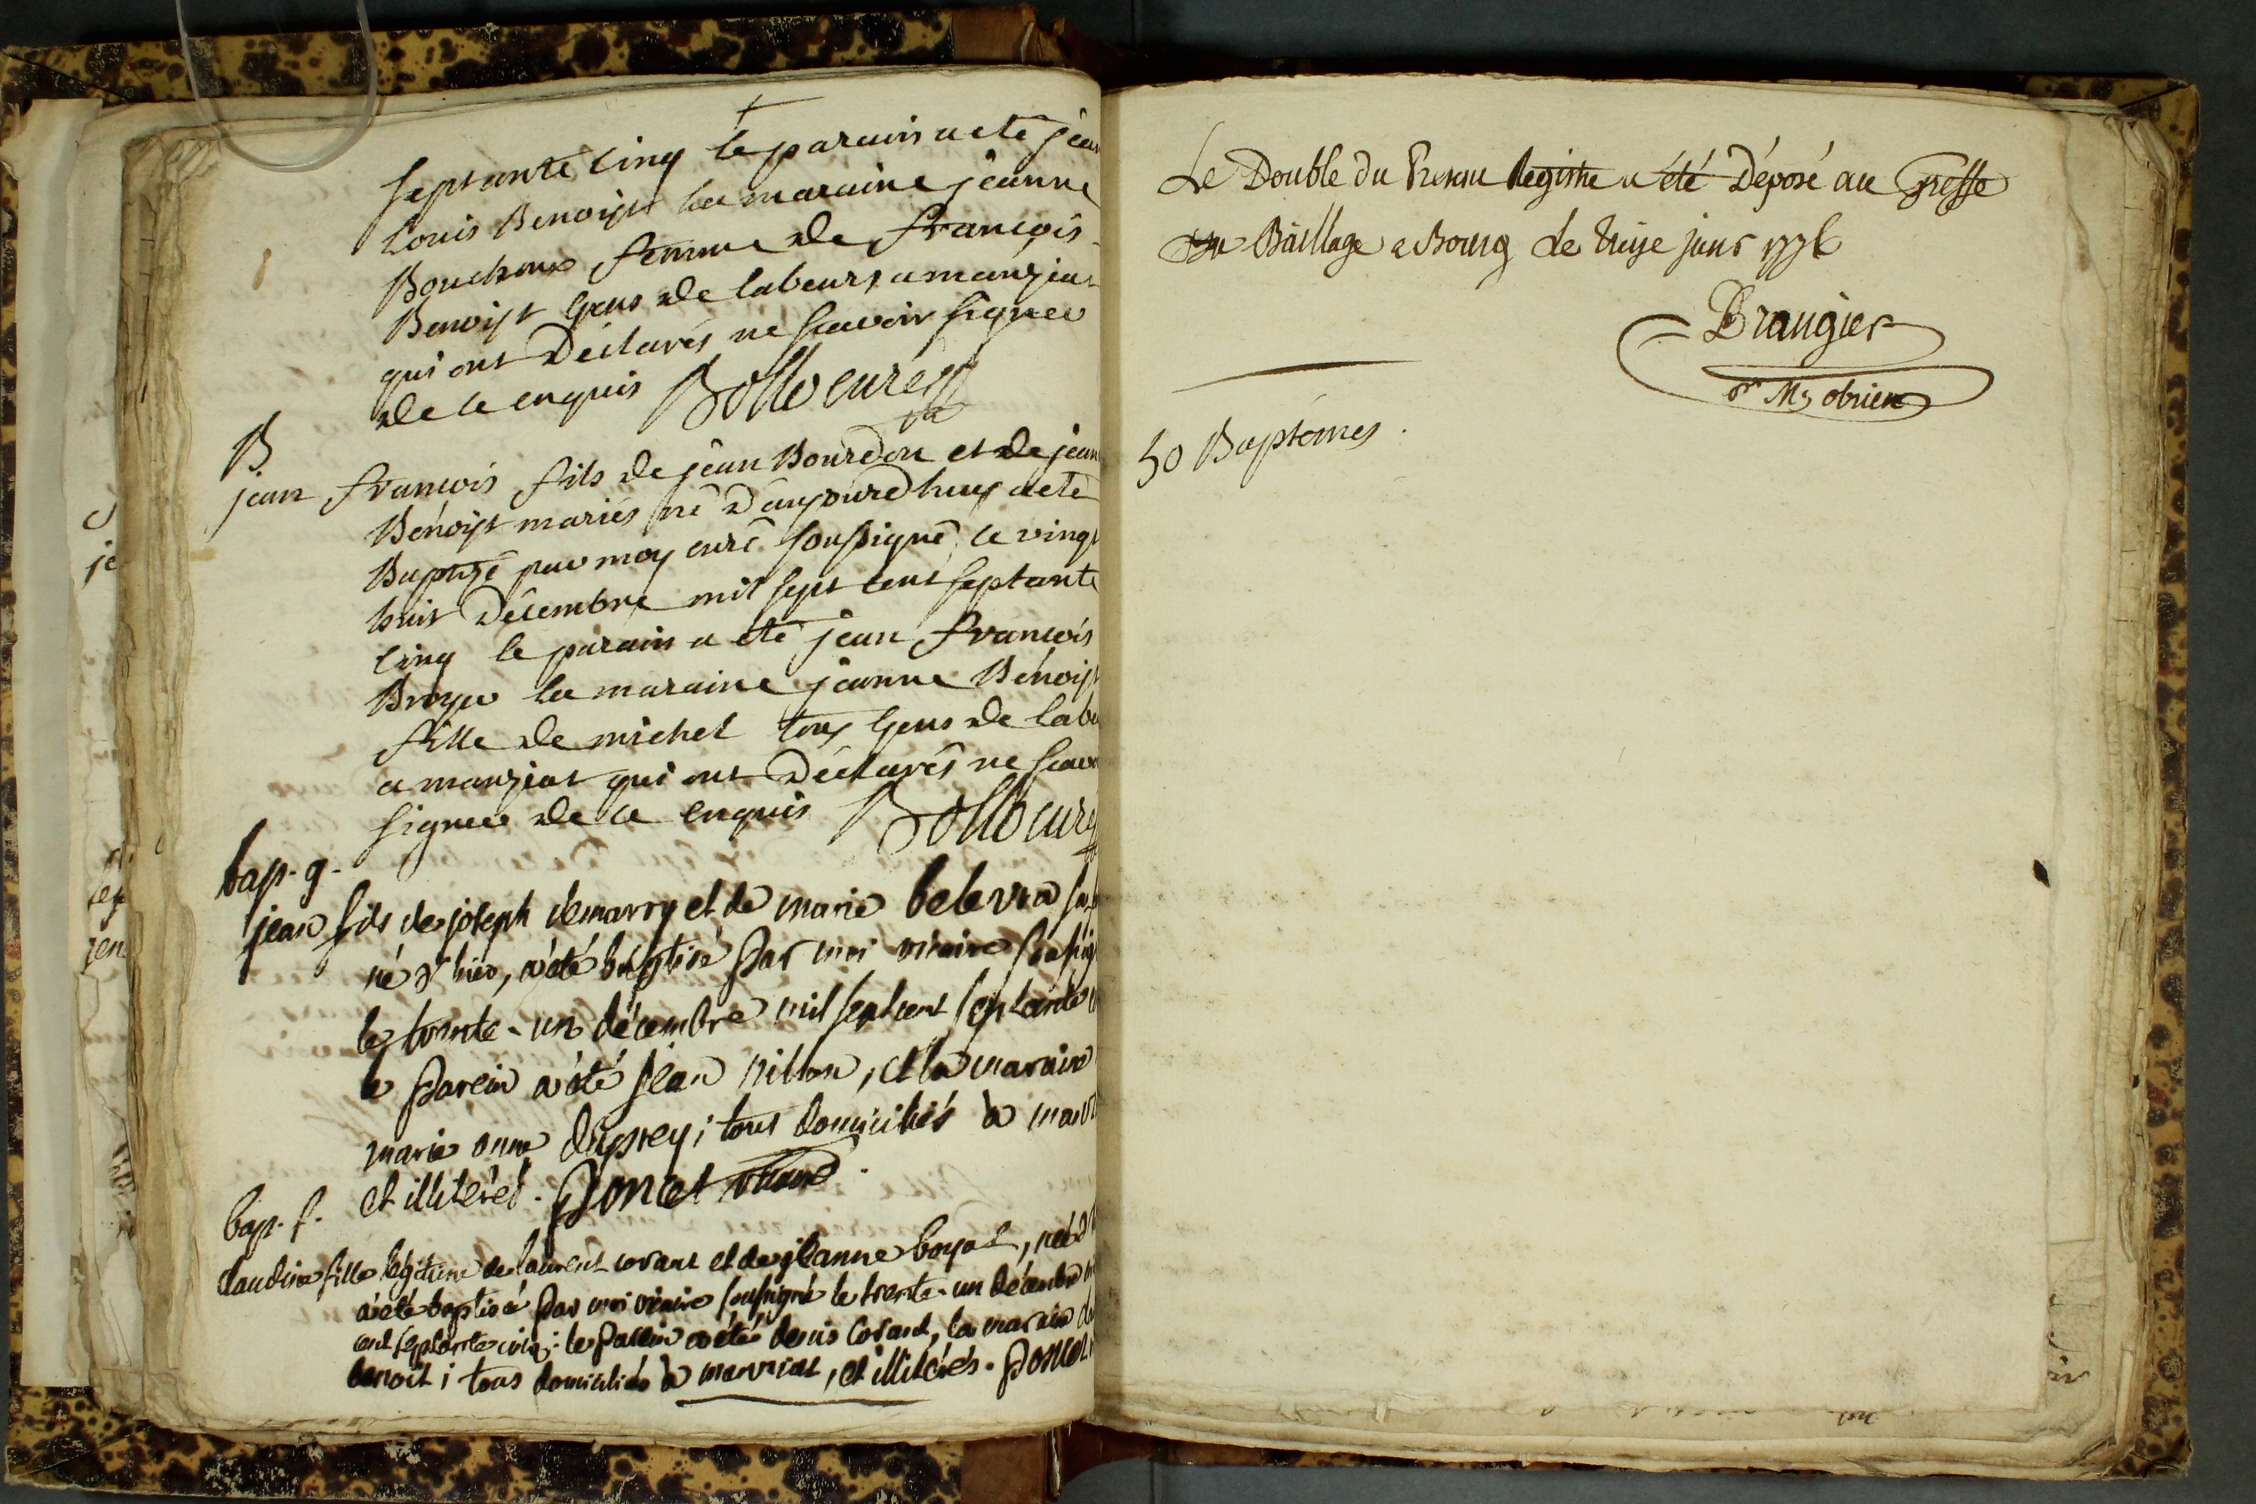 septante cinq le parain a eté jean
Louis Benoist la maraine jeanne
Bouchoux femme de françois
Benoist gens de labeurs a manziat
qui ont déclarés ne scavoir signer
de ce enquis Bollo curé
B
jean françois fils de jean Bourdon et de jean
Benoist mariés né d'aujourdhuy a eté
Baptisé par moy curé soussigné ce vingt
huit décembre mil sept cent septante
cinq le parain a eté jean françois
Broyer la maraine jeanne Benoist
fille de michel tous gens de labe
a manziat qui ont déclarés ne scavo
signer de ce enquis Bollo curé
bap. g.
jean fils de joseph demarry et de marie
né d'hier, a été baptisé par moi vicaire soussig
le trente-un décembre mil sept cent septante
le parein a été jean , et la maraine
marie anne duprey; tous domiciliés à
et illiterés. Poncet vicaire.
bap. f.
claudine fille légitime de laurent corant et de jeanne boyat, née d
a été baptisé par moi vicaire soussigné le trente-un décembre
cent septante cinq; le parein a été denis corant, la maraine
benoit; tous domiciliés à manziat, et illitérés. Poncet
Le Double du Present Registre a été Déposé au Greffe
du Bailliage a Bourg le Treize janr 1776
Brangier
50 Baptémes.